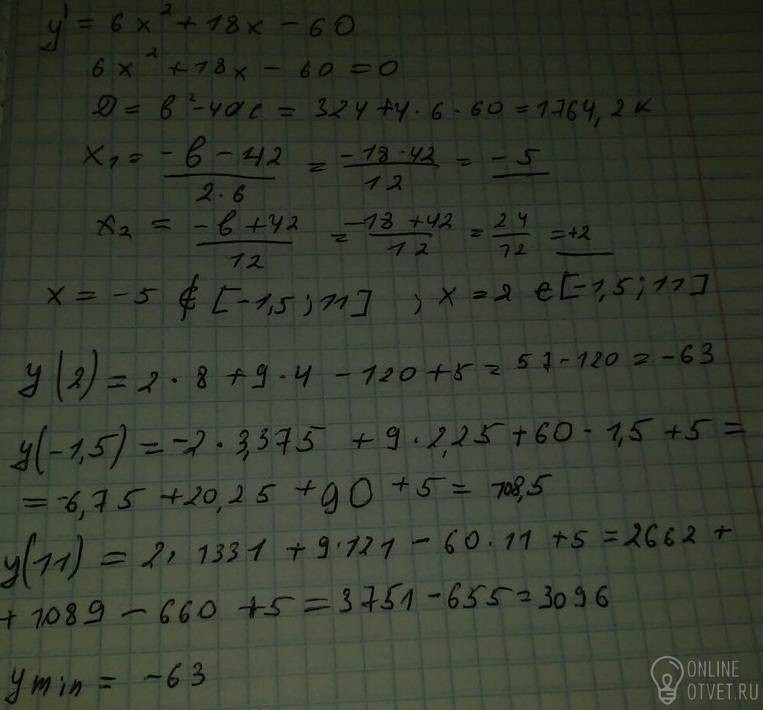 y' = 6x² + 18x - 60
6x² + 18x - 60 = 0
D = b² - 4ac = 324 + 4 · 6 · 60 = 1764, 2к
x₁ = (-b - 42)/(2 · 6) = (-18 - 42)/12 = -5
x₂ = (-b + 42)/12 = (-18 + 42)/12 = 24/12 = +2
x = -5 ∉ [-1,5 ; 11] ; x = 2 ∈ [-1,5 ; 11]
y(2) = 2 · 8 + 9 · 4 - 120 + 5 = 57 - 120 = -63
y(-1,5) = -2 · 3,375 + 9 · 2,25 + 60 · 1,5 + 5 =
= -6,75 + 20,25 + 90 + 5 = 108,5
y(11) = 2 · 1331 + 9 · 121 - 60 · 11 + 5 = 2662 +
+ 1089 - 660 + 5 = 3751 - 655 = 3096
y min = -63
ONLINE
OTVET.RU